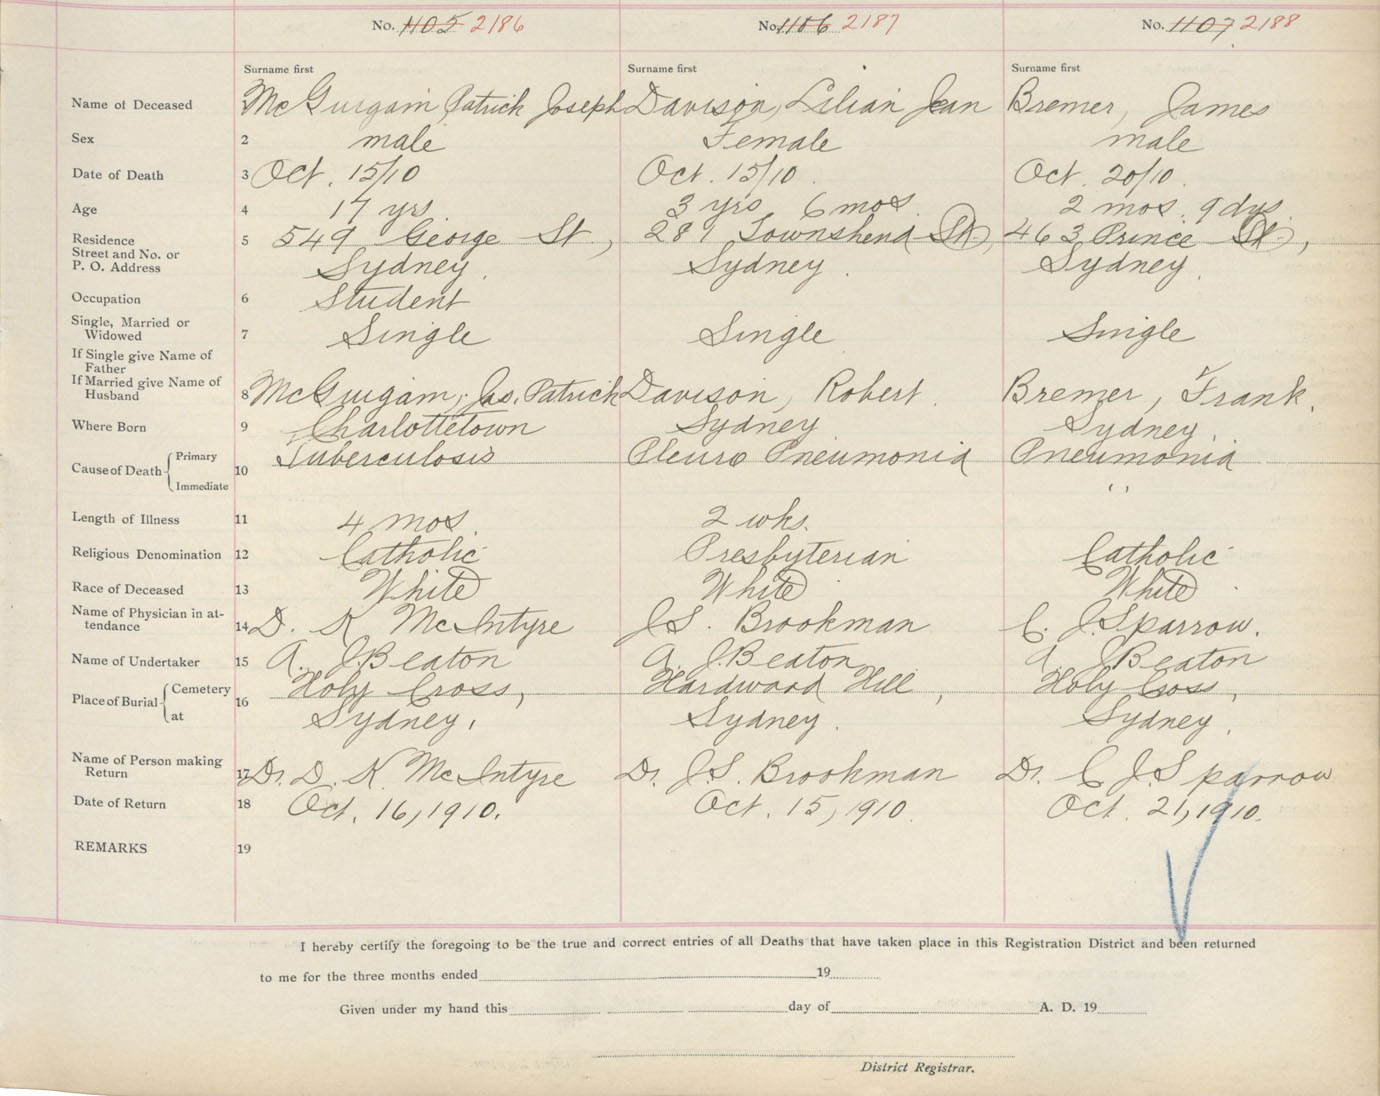 No. 1105 2186 No. 1106 2187 No. 1107 2188
Surname first Surname first Surname first
Name of Deceased 1 McGuigam Patrick Joseph Davison, Lilian Jean Bremer, James
Sex 2 male Female male
Date of Death 3 Oct. 15/10 Oct. 15/10. Oct. 20/10.
Age 4 17 yrs 3 yrs 6 mos. 2 mos. 9 dys
Residence 5 549 George St., 287 Townshend St., 463 Prince St.,
Street and No. or
P. O. Address Sydney. Sydney. Sydney.
Occupation 6 Student
Single, Married or
Widowed 7 Single Single Single
If Single give Name of
Father
If Married give Name of
Husband 8 McGuigam, Jas. Patrick Davison, Robert. Bremer, Frank.
Where Born 9 Charlottetown Sydney Sydney.
Cause of Death Primary 10 Tuberculosis Pleuro Pneumonia Pneumonia
Immediate "
Length of Illness 11 4 mos. 2 wks.
Religious Denomination 12 Catholic Presbyterian Catholic
Race of Deceased 13 White White White
Name of Physician in at-
tendance 14 D. K McIntyre J.S. Brookman C. J. Sparrow.
Name of Undertaker 15 A. J. Beaton A. J. Beaton A. J. Beaton
Place of Burial Cemetery 16 Holy Cross, Hardwood Hill, Holy Cross,
at Sydney. Sydney. Sydney.
Name of Person making
Return 17 Dr. D. K. McIntyre Dr. J.S. Brookman Dr. C J. Sparrow
Date of Return 18 Oct. 16, 1910. Oct. 15, 1910. Oct. 21, 1910.
REMARKS 19
I hereby certify the foregoing to be the true and correct entries of all Deaths that have taken place in this Registration District and been returned
to me for the three months ended 19
Given under my hand this day of A. D. 19
District Registrar.